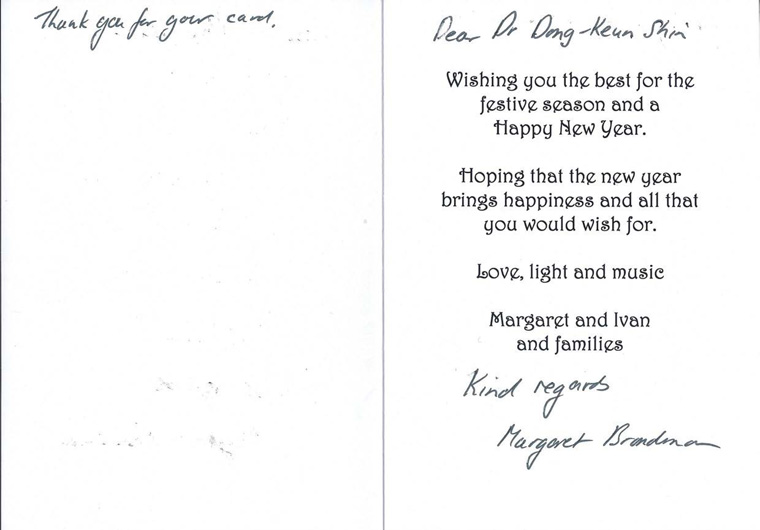 Thank you for your card.
Dear Dr Dong-Keun Shin
Wishing you the best for the
festive season and a
Happy New Year.
Hoping that the new year
brings happiness and all that
you would wish for.
Love, light and music
Margaret and Ivan
and families
Kind regards
Margaret Brandman